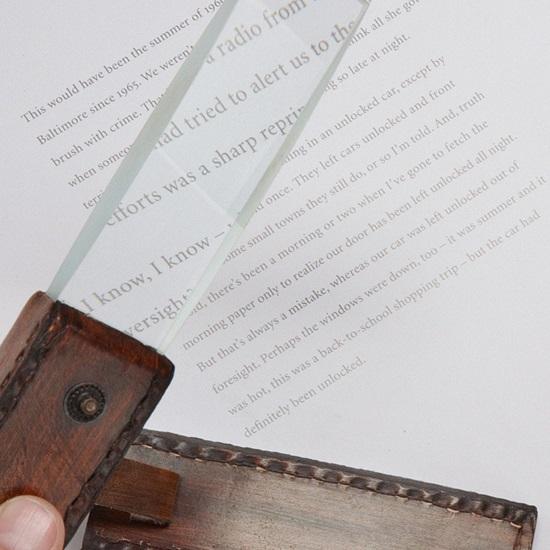 This would have been the summer of 196
Baltimore since 1965. We weren't a radio from think all she go
brush with crime. Tha had tried to alert us to the so late at night.
when someo had tried to alert us to the
efforts was a sharp reprin ing in an unlocked car, except by
once. They left cars unlocked and front
I know, I know – ome small towns they still do, or so I'm told. And, truth
versight? d, there's been a morning or two when I've gone to fetch the
morning paper only to realize our door has been left unlocked all night.
But that's always a mistake, whereas our car was left unlocked out of
foresight. Perhaps the windows were down, too – it was summer and it
was hot, this was a back-to-school shopping trip – but the car had
definitely been unlocked.